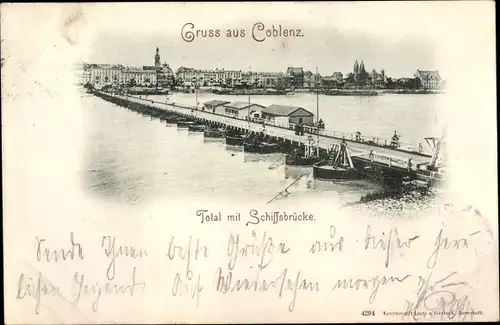 Gruss aus Coblenz.
Total mit Schiffsbrücke.
Sende Ihnen beste Grüße aus dieser herr-
lichen Gegend. Auf Wiedersehen morgen
4294